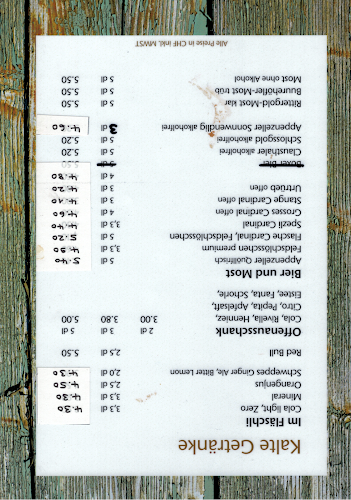 Kalte Getränke
Im Fläschli
Cola light, Zero 3,3 dl 4.30
Mineral 3,3 dl 4.30
Orangenjus 2,5 dl 4.50
Schweppes Ginger Ale, Bitter Lemon 2,0 dl 4.30
Red Bull 2,5 dl 5.50
Offenausschank 2 dl 3 dl 5 dl
Cola, Rivella, Henniez, 3.00 3.80 5.00
Citro, Pepita, Apfelsaft,
Eistee, Fanta, Schorle,
Bier und Most
Appenzeller Quöllfrisch 5 dl 5.40
Feldschlösschen premium 3,3 dl 4.90
Flasche Cardinal, Feldschlösschen 5 dl 5.20
Spezli Cardinal 3,3 dl 4.40
Grosses Cardinal offen 4 dl 4.60
Stange Cardinal offen 3 dl 4.10
Urtrüeb offen 3 dl 4.20
4 dl 4.80
Boxer Bier 5 dl 5.50
Clausthaler alkoholfrei 5 dl 5.20
Schlossgold alkoholfrei 5 dl 5.20
Appenzeller Sonnwendlig alkoholfrei 3 dl 4.60
Rittergold-Most klar 5 dl 5.50
Buurehöfler-Most trüb 5 dl 5.50
Most ohne Alkohol 5 dl 5.50
Alle Preise in CHF inkl. MWST